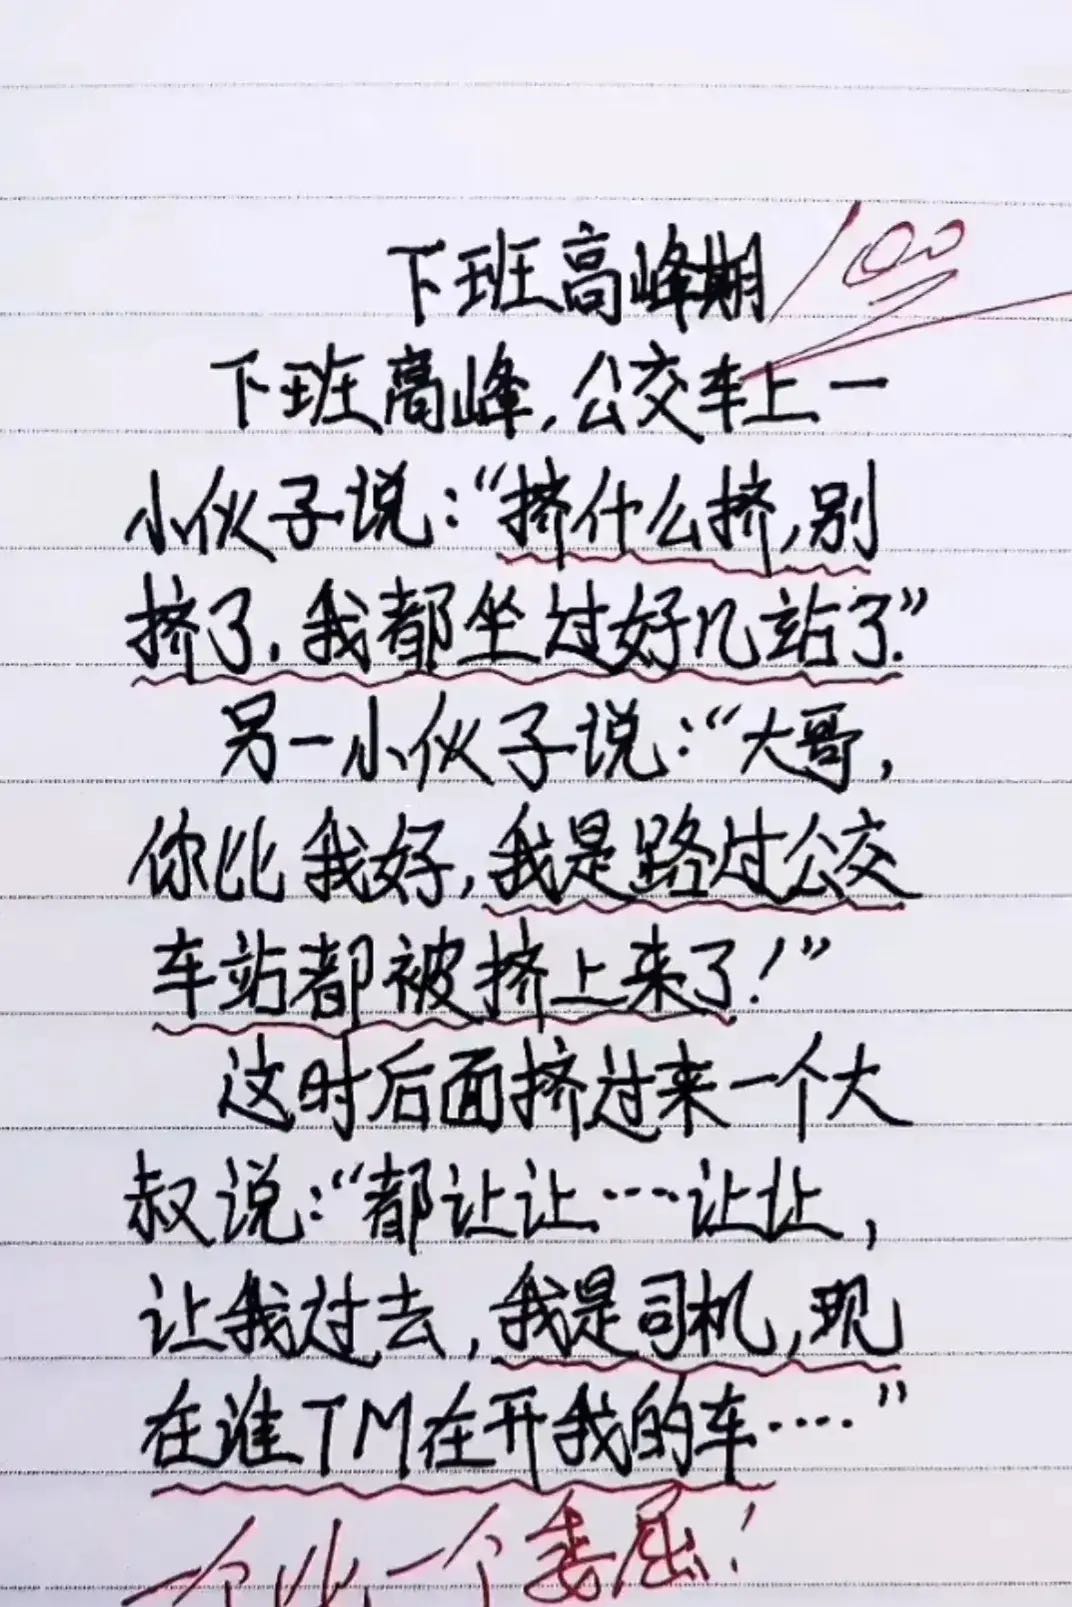 下班高峰期
100
下班高峰,公交车上一
小伙子说:“挤什么挤,别
挤了,我都坐过好几站了.”
另一小伙子说:“大哥,
你比我好,我是路过公交
车站都被挤上来了!”
这时后面挤过来一个大
叔说:“都让让……让让,
让我过去,我是司机,现
在谁TM在开我的车……”
一个比一个委屈!